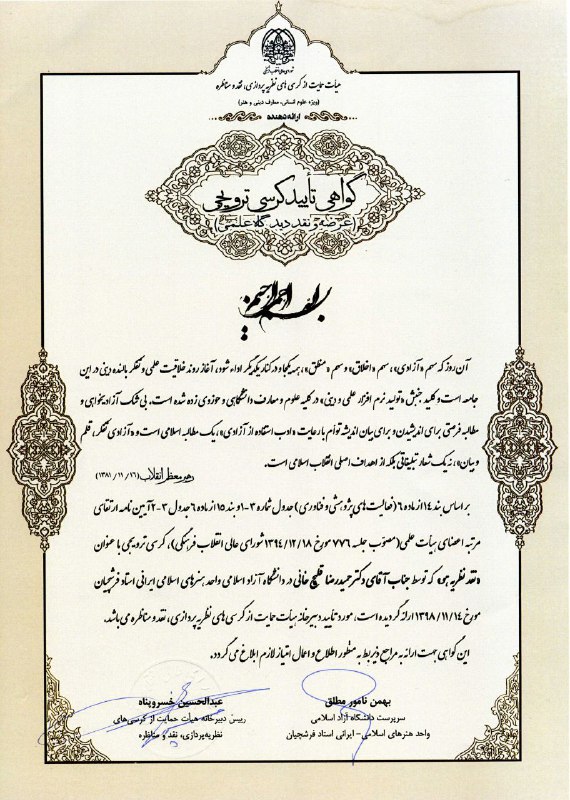 شورای عالی انقلاب فرهنگی
هیأت حمایت از کرسی های نظریه پردازی، نقد و مناظره
(ویژه علوم انسانی، معارف دینی و هنر)
ارائه دهنده
گواهی تأیید کرسی ترویجی
(عرضه و نقد دیدگاه علمی)
بسم الله الرحمن الرحیم
آن روز که سهم «آزادی»، سهم «اخلاق» و سهم «منطق»، همه یکجا و در کنار یکدیگر اداء شود، آغاز روند خلاقیت علمی و تفکر بالنده دینی در این
جامعه است و کلید جنبش «تولید نرم افزار علمی و دینی» در کلیه علوم و معارف دانشگاهی و حوزوی زده شده است. بی شک آزادیخواهی و
مطالبه فرصتی برای اندیشیدن و برای بیان اندیشه توأم با رعایت «ادب استفاده از آزادی»، یک مطالبه اسلامی است و «آزادی تفکر، قلم
و بیان»، نه یک شعار تبلیغاتی بلکه از اهداف اصلی انقلاب اسلامی است.
رهبر معظم انقلاب (۱۳۸۱/۱۱/۱۶)
بر اساس بند ۱۴ از ماده ۶ (فعالیت های پژوهشی و فناوری) جدول شماره ۳-۱ و بند ۱۵ از ماده ۶ جدول ۳-۲ آیین نامه ارتقای
مرتبه اعضای هیأت علمی (مصوب جلسه ۷۷۶ مورخ ۱۳۹۴/۱۲/۱۸ شورای عالی انقلاب فرهنگی)، کرسی ترویجی با عنوان
«نقد نظریه هو» که توسط جناب آقای دکتر حمیدرضا قلیچ خانی در دانشگاه آزاد اسلامی واحد هنرهای اسلامی ایرانی استاد فرشچیان
مورخ ۱۳۹۸/۱۱/۱۴ ارائه گردیده است، مورد تأیید دبیرخانه هیأت حمایت از کرسی های نظریه پردازی، نقد و مناظره می باشد.
این گواهی جهت ارائه به مراجع ذیربط به منظور اطلاع و اعمال امتیاز لازم ابلاغ می گردد.
بهمن نامور مطلق
سرپرست دانشگاه آزاد اسلامی
واحد هنرهای اسلامی- ایرانی استاد فرشچیان
عبدالحسین خسروپناه
رییس دبیرخانه هیأت حمایت از کرسی‌های
نظریه‌پردازی، نقد و مناظره